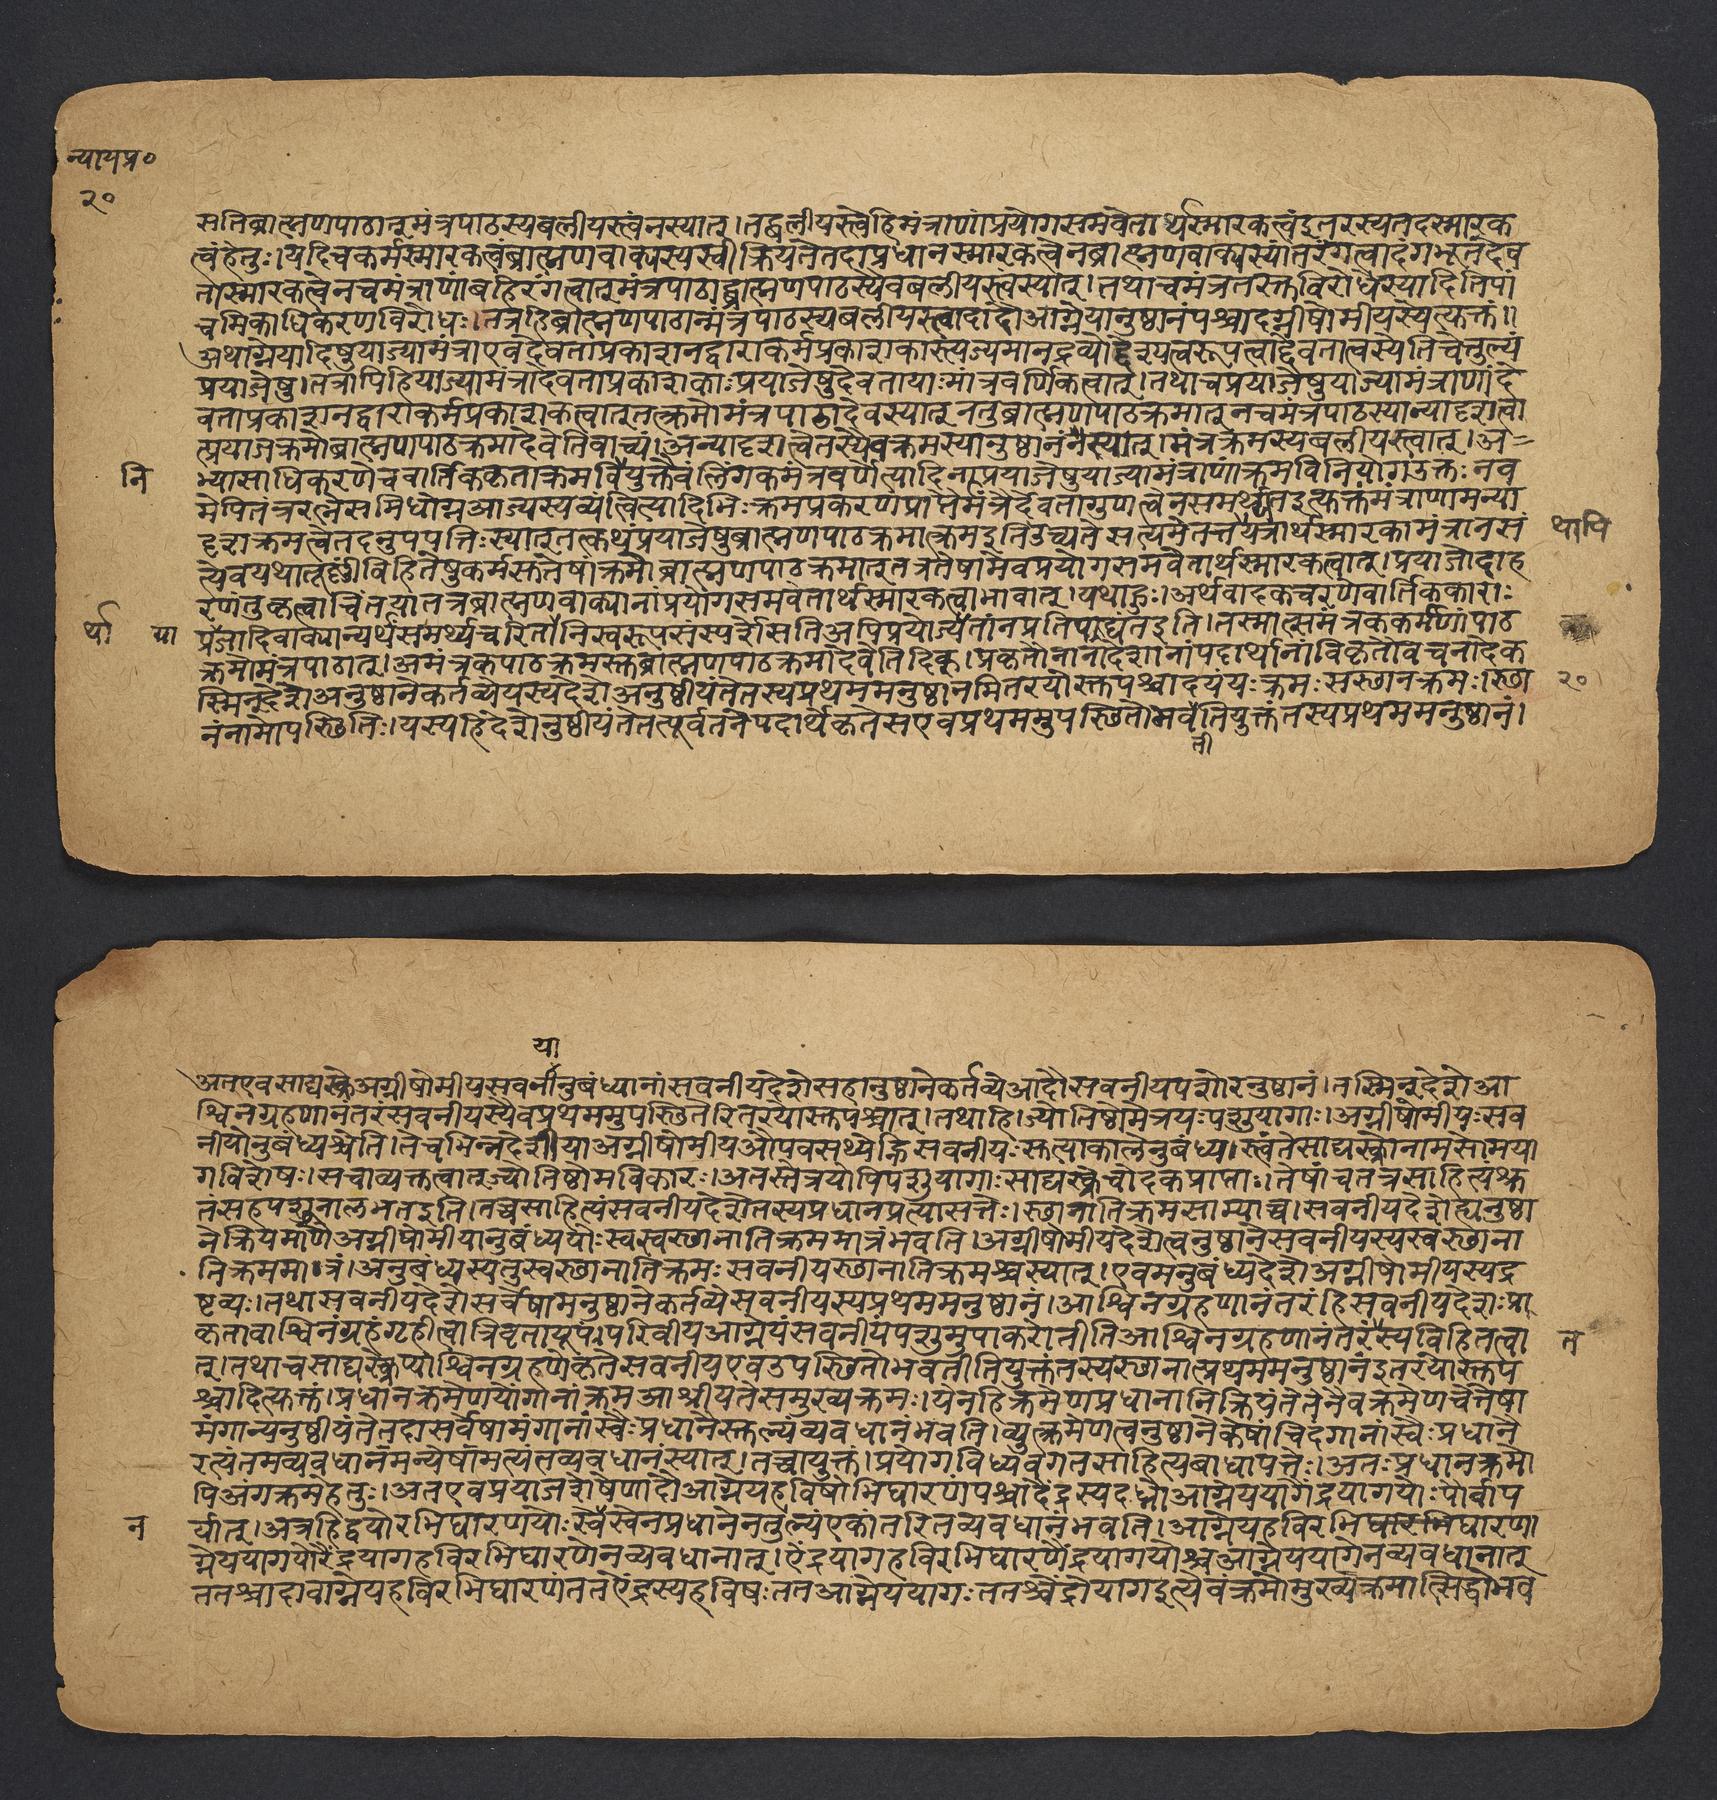 न्यायप्र०
२०
सतिब्राह्मणपाठात्मंत्रपाठस्यबलीयस्त्वंनस्यात्।तद्बलीयस्त्वेहिमंत्राणांप्रयोगसमवेतार्थस्मारकत्वंइतरस्यतदस्मारक
त्वंहेतुः।यदिचकर्मस्मारकत्वंब्राह्मणवाक्यस्यस्वीक्रियतेतदाप्रधानस्मारकत्वेनब्राह्मणवाक्यस्यांतरंगत्वादंगभूतदेव
तास्मारकत्वेनचमंत्राणांबहिरंगत्वात्मंत्रपाठाद्ब्राह्मणपाठस्यैवबलीयस्त्वंस्यात्।तथाचमंत्रतस्तुविरोधेस्यादितिपां
चमिकाधिकरणविरोधः।तत्रहिब्राह्मणपाठान्मंत्रपाठस्यबलीयस्त्वादादौआग्नेयानुष्ठानंपश्चादग्नीषोमीयस्येत्युक्तं॥
अथाग्नेयादिषुयाज्यामंत्राएवदेवताप्रकाशनद्वाराकर्मप्रकाशकास्त्यज्यमानद्रव्योद्देश्यत्वरूपत्वाद्देवतात्वस्येतिचेत्तुल्यं
प्रयाजेषु।तत्रापिहियाज्यामंत्रादेवताप्रकाशकाःप्रयाजेषुदेवतायाःमांत्रवर्णिकत्वात्।तथाचप्रयाजेषुयाज्यामंत्राणांदे
वताप्रकाशनद्वाराकर्मप्रकाशकत्वात्तत्क्रमोमंत्रपाठादेवस्यात्नतुब्राह्मणपाठक्रमात्नचमंत्रपाठस्यान्यादृशत्वा
त्प्रयाजक्रमोब्राह्मणपाठक्रमादेवेतिवाच्यं।अन्यादृशत्वेतस्यैवक्रमस्यानुष्ठानंनस्यात्।मंत्रक्रमस्यबलीयस्त्वात्।अ
नि
भ्यासाधिकरणेचवार्तिककृताक्रमवियुक्तैवंलिंगकमंत्रवर्णेत्यादिनाप्रयाजेषुयाज्यामंत्राणांक्रमविनियोगउक्तःनव
मेपितंत्ररत्नेसमिधोग्नआज्यस्यव्यंत्वित्यादिभिःक्रमप्रकरणप्राप्तैर्मंत्रैर्देवतागुणत्वेनसमर्थ्यतइत्युक्तमंत्राणामन्या
दृशक्रमत्वेतदनुपपत्तिःस्यात्तत्कथंप्रयाजेषुब्राह्मणपाठक्रमात्क्रमइतिउच्यतेसत्यमेतत्तयत्रार्थस्मारकामंत्रानसं
थापि
त्येवयथातूष्णींविहितेषुकर्मसुतेषांक्रमोब्राह्मणपाठक्रमात्तत्रतेषामेवप्रयोगसमवेतार्थस्मारकत्वात्।प्रयाजोदाह
रणंतुकृत्वाचिंतयातत्रब्राह्मणवाक्यानांप्रयोगसमवेतार्थस्मारकत्वाभावात्।यथाहुः।अर्थवादकचरणेवार्तिककाराः
र्था
या
प्रजादिवाक्यान्यर्थसमर्थ्यचरितानिस्वरूपसंस्पर्शेसतिअपिप्रयोज्यतांनप्रतिपाद्यंतइति।तस्मात्समंत्रककर्मणांपाठ
क्रमोमंत्रपाठात्।अमंत्रकपाठक्रमस्तुब्राह्मणपाठक्रमादेवेतिदिक्।प्रकृतौनानादेशानांपदार्थानांविकृतौवचनादेक
स्मिन्देशेअनुष्ठानेकर्तव्येयस्यदेशेअनुष्ठीयंतेतस्यप्रथममनुष्ठानमितरयोस्तुपश्चादयंयःक्रमःसस्थानक्रमः।स्था
२०
नंनामोपस्थितिः।यस्यहिदेशेनुष्ठीयंतेतत्पूर्वतनेपदार्थेकृतेसएवप्रथममुपस्थितोभवतियुक्तंतस्यप्रथममनुष्ठानं।
ती
या
अतएवसाद्यस्क्रेअग्नीषोमीयसवनीनुबंध्यानांसवनीयदेशेसहानुष्ठानेकर्तव्येआदौसवनीयपशोरनुष्ठानं।तस्मिन्देशेआ
श्विनग्रहणानंतरंसवनीयस्यैवप्रथममुपस्थितेरितरयोस्तुपश्चात्।तथाहि।ज्योतिष्टोमेत्रयःपशुयागाः।अग्नीषोमीयःसव
नीयोनुबंध्यश्चेति।तेचभिन्नदेशीयाअग्नीषोमीयऔपवसथ्येह्निसवनीयःसुत्याकालेनुबंध्य।स्त्वंतेसाद्यस्क्रोनामसोमया
गविशेषः।सचाव्यक्तत्वात्ज्योतिष्टोमविकारः।अतस्तेत्रयोपिपशुयागाःसाद्यस्क्रेचोदकप्राप्ताः।तेषांचतत्रसाहित्यंश्रु
तंसहपशूनालभतइति।तच्चसाहित्यंसवनीयदेशेतस्यप्रधानप्रत्यासत्तेः।स्थानातिक्रमसाम्याच्च।सवनीयदेशेह्यनुष्ठा
नेक्रियमाणेअग्नीषोमीयानुबंध्ययोःस्वस्वस्थानातिक्रममात्रंभवति।अग्नीषोमीयदेशेत्वनुष्ठानेसवनीयस्यस्वस्थाना
तिक्रममात्रं।अनुबंध्यस्यतुस्वस्थानातिक्रमःसवनीयस्थानातिक्रमश्चस्यात्।एवमनुबंध्यदेशेअग्नीषोमीयस्यद्र
ष्टव्यः।तथासवनीयदेशेसर्वेषामनुष्ठानेकर्तव्येसवनीयस्यप्रथममनुष्ठानं।आश्विनग्रहणानंतरंहिसवनीयदेशःप्रा
कृतावाश्विनंग्रहंगृहीत्वात्रिवृतायूपंपरिवीयआग्नेयंसवनीयंपशुमुपाकरोतीतिआश्विनग्रहणानंतरंस्यविहितत्वा
त
त्।तथाचसाद्यस्क्रेप्याश्विनग्रहणेकृतेसवनीयएवउपस्थितोभवतीतियुक्तंतस्यस्थानात्प्रथममनुष्ठानंइतरयोस्तुप
श्चादित्युक्तं।प्रधानक्रमेणयोंगानांक्रमआश्रीयतेसमुख्यक्रमः।येनहिक्रमेणप्रधानानिक्रियंतेतेनैवक्रमेणचेत्तेषा
मंगान्यनुष्ठीयंतेतदासर्वेषामंगानांस्वैःप्रधानैस्तुल्यंव्यवधानंभवति।व्युत्क्रमेणत्वनुष्ठानेकेषांचिदंगानांस्वैःप्रधानै
रत्यंतमव्यवधानमन्येषामत्यंतव्यवधानंस्यात्।तच्चायुक्तं।प्रयोगविध्यवगतसाहित्यबाधापत्तेः।अतःप्रधानक्रमो
पिअंगक्रमेहेतुः।अतएवप्रयाजशेषेणादौआग्नेयहविषोभिघारणंपश्चादैंद्रस्यदध्नोआग्नेययागेंद्रयागयोःपौर्वाप
न
र्यात्।अत्रहिद्वयोरभिघारणयोःस्वेस्वेनप्रधानेनतुल्यंएकांतरितव्यवधानंभवति।आग्नेयहविरभिघारभिघारणा
ग्नेययागयोरैंद्रयागहविरभिघारणेनव्यवधानात्।ऐंद्रयागहविरभिघारणैंद्रयागयोश्चआग्नेययागेनव्यवधानात्
ततश्चादावाग्नेयहविरभिघारणंततऐंद्रस्यहविषःततआग्नेययागःततश्चैंद्रोयागइत्येवंक्रमोमुख्यक्रमात्सिद्धोभव